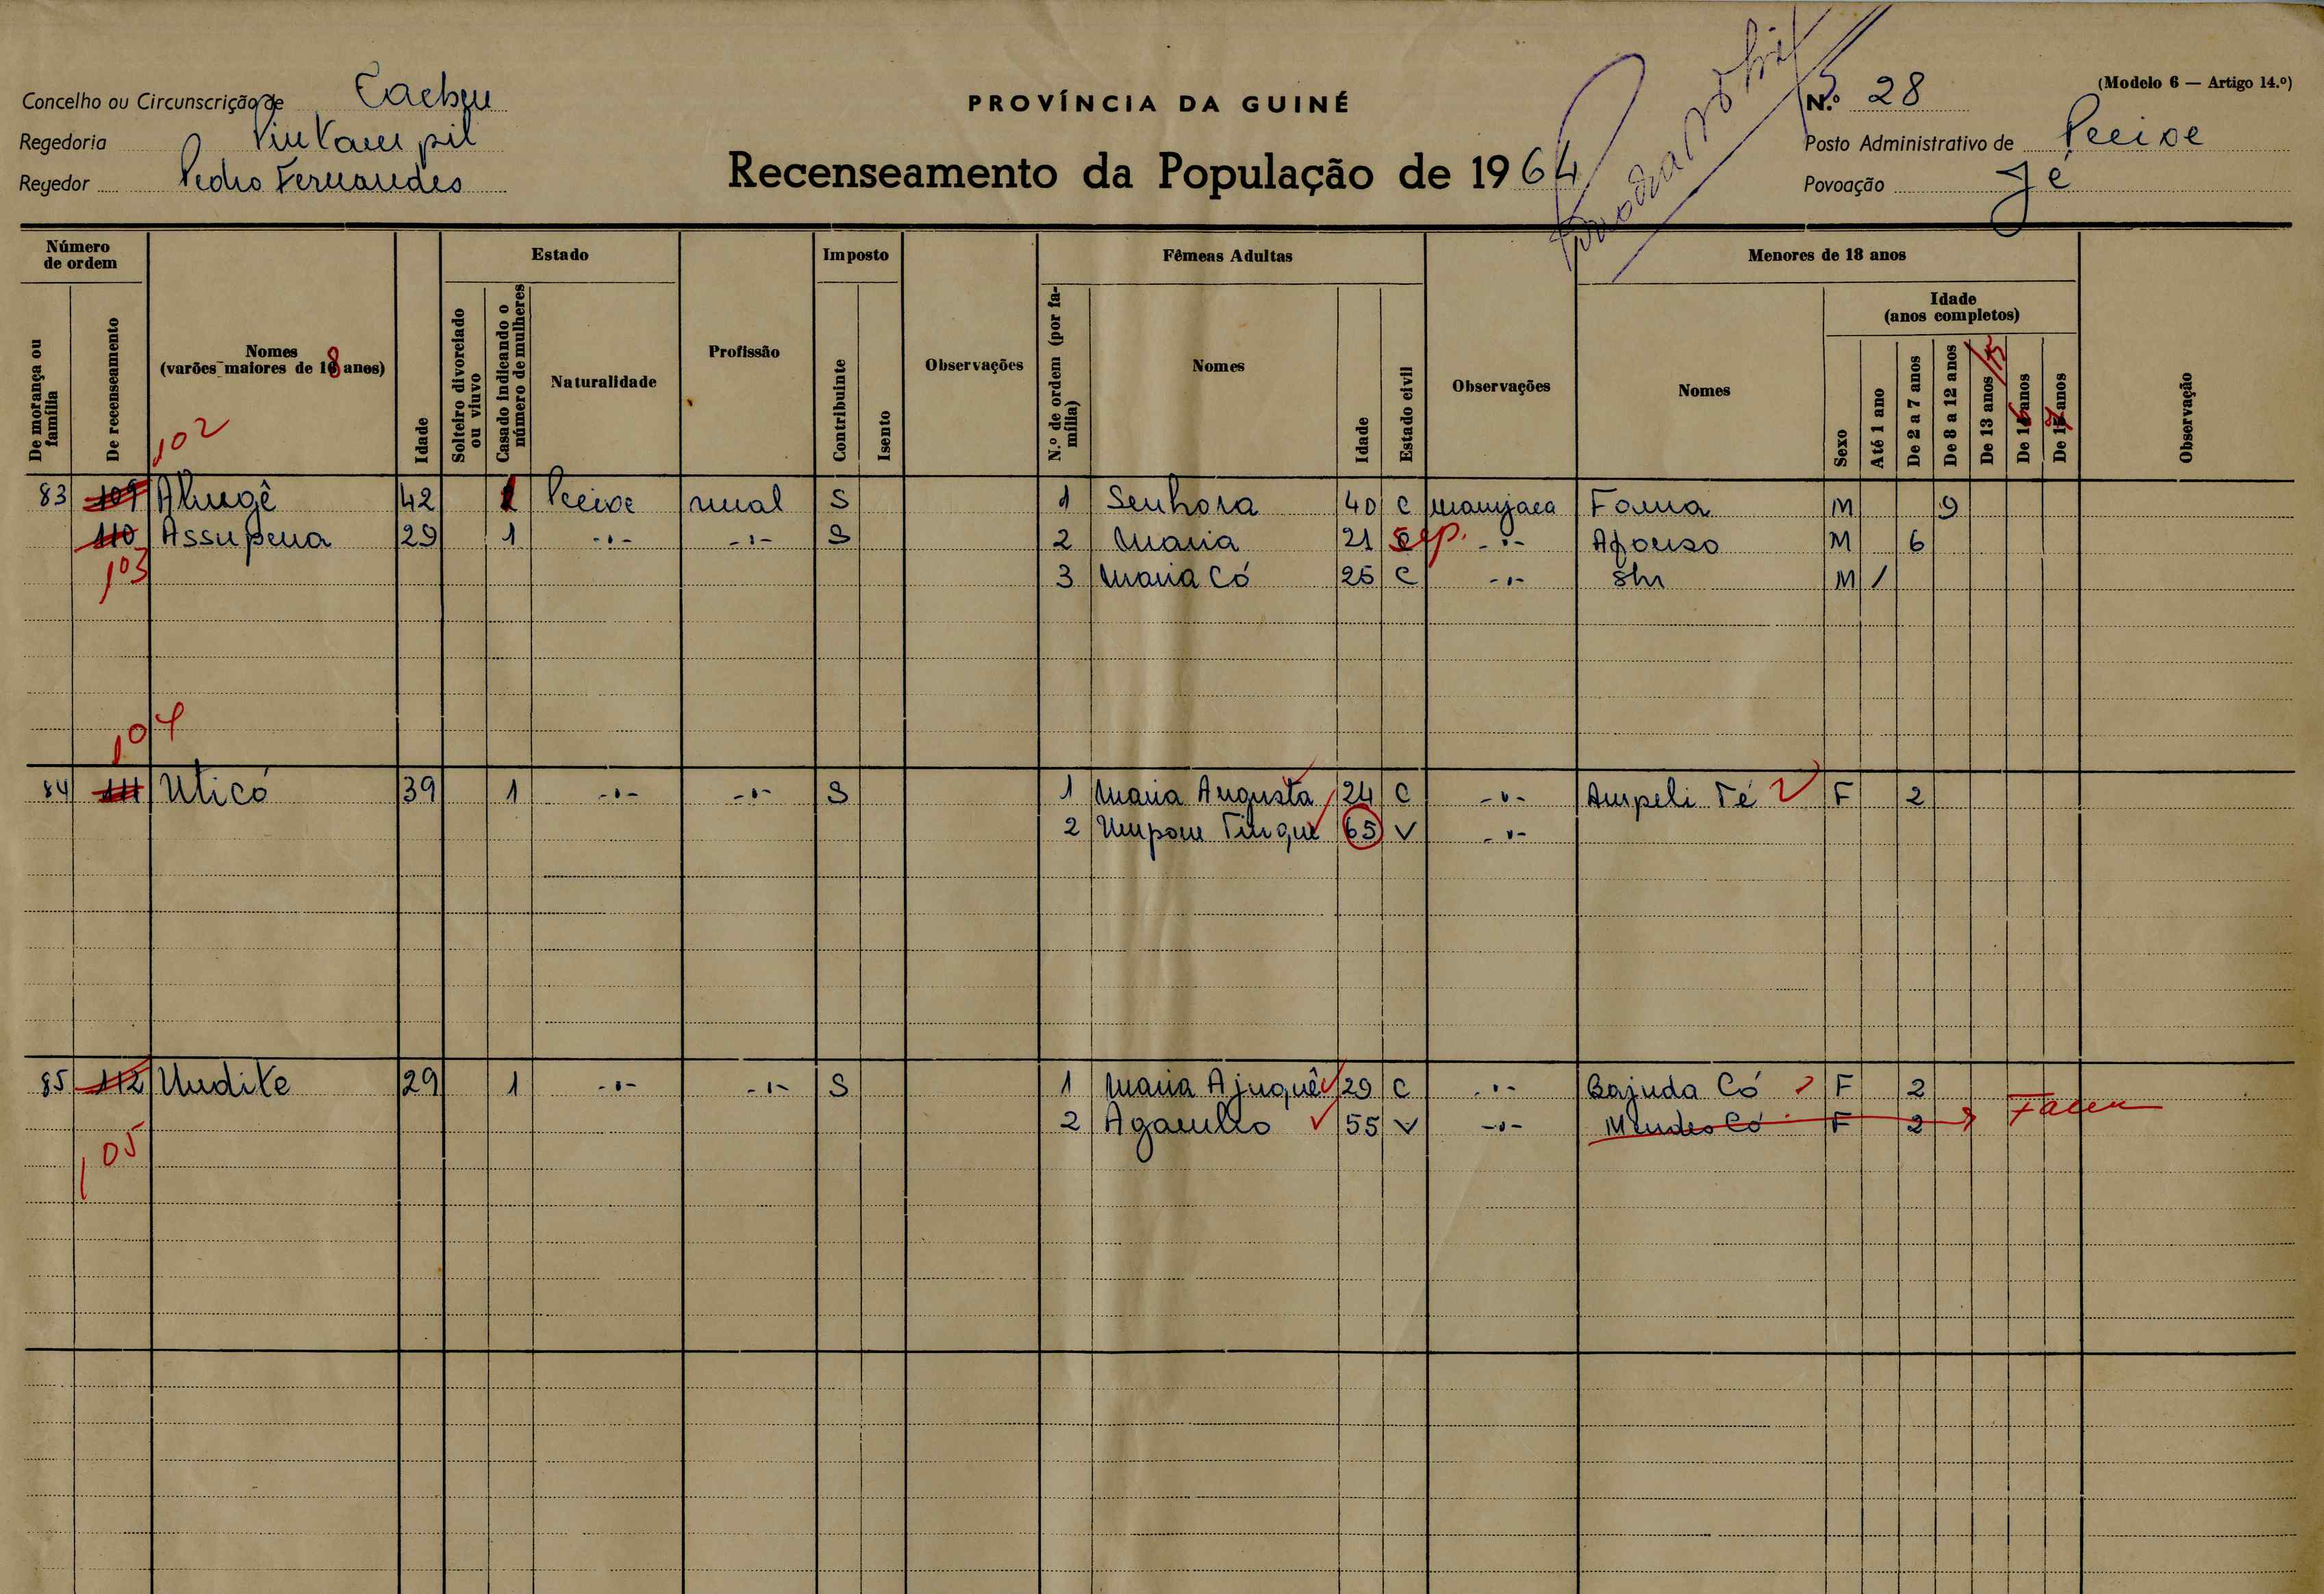 Concelho ou Circunscrição de Cacheu
PROVÍNCIA DA GUINÉ
N.º 28
(Modelo 6 — Artigo 14.º)
Regedoria
Posto Administrativo de Pecixe
Regedor Pedro Fernandes
Recenseamento da População de 1964
Povoação Jé
Número de ordem
De morança ou família
De recenseamento
Nomes (varões maiores de 18 anos)
Idade
Estado
Solteiro divorciado ou viuvo
Casado indicando o número de mulheres
Naturalidade
Profissão
Imposto
Contribuinte
Isento
Observações
Fêmeas Adultas
N.º de ordem (por família)
Nomes
Idade
Estado civil
Observações
Menores de 18 anos
Nomes
Sexo
Idade (anos completos)
Até 1 ano
De 2 a 7 anos
De 8 a 12 anos
De 13 anos /15
De 16 anos
De 17 anos
Observação
102
83 109 42 1 Pecixe rural S 1 Senhora 40 C manjaca Fama M 9
110 Assupena 29 1 -"- -"- S 2 Maria 21 sep. -"- Afonso M 6
103 3 Maria Có 25 C -"- M 1
104
84 111 Uticó 39 1 -"- -"- S 1 Maria Augusta 24 C -"- Ampeli Té F 2
2 65 V -"-
85 112 Undite 29 1 -"- -"- S 1 Maria Ajuquê 29 C -"- Bajuda Có F 2
2 55 V -"- Mendes Có F 2 Faleu
105